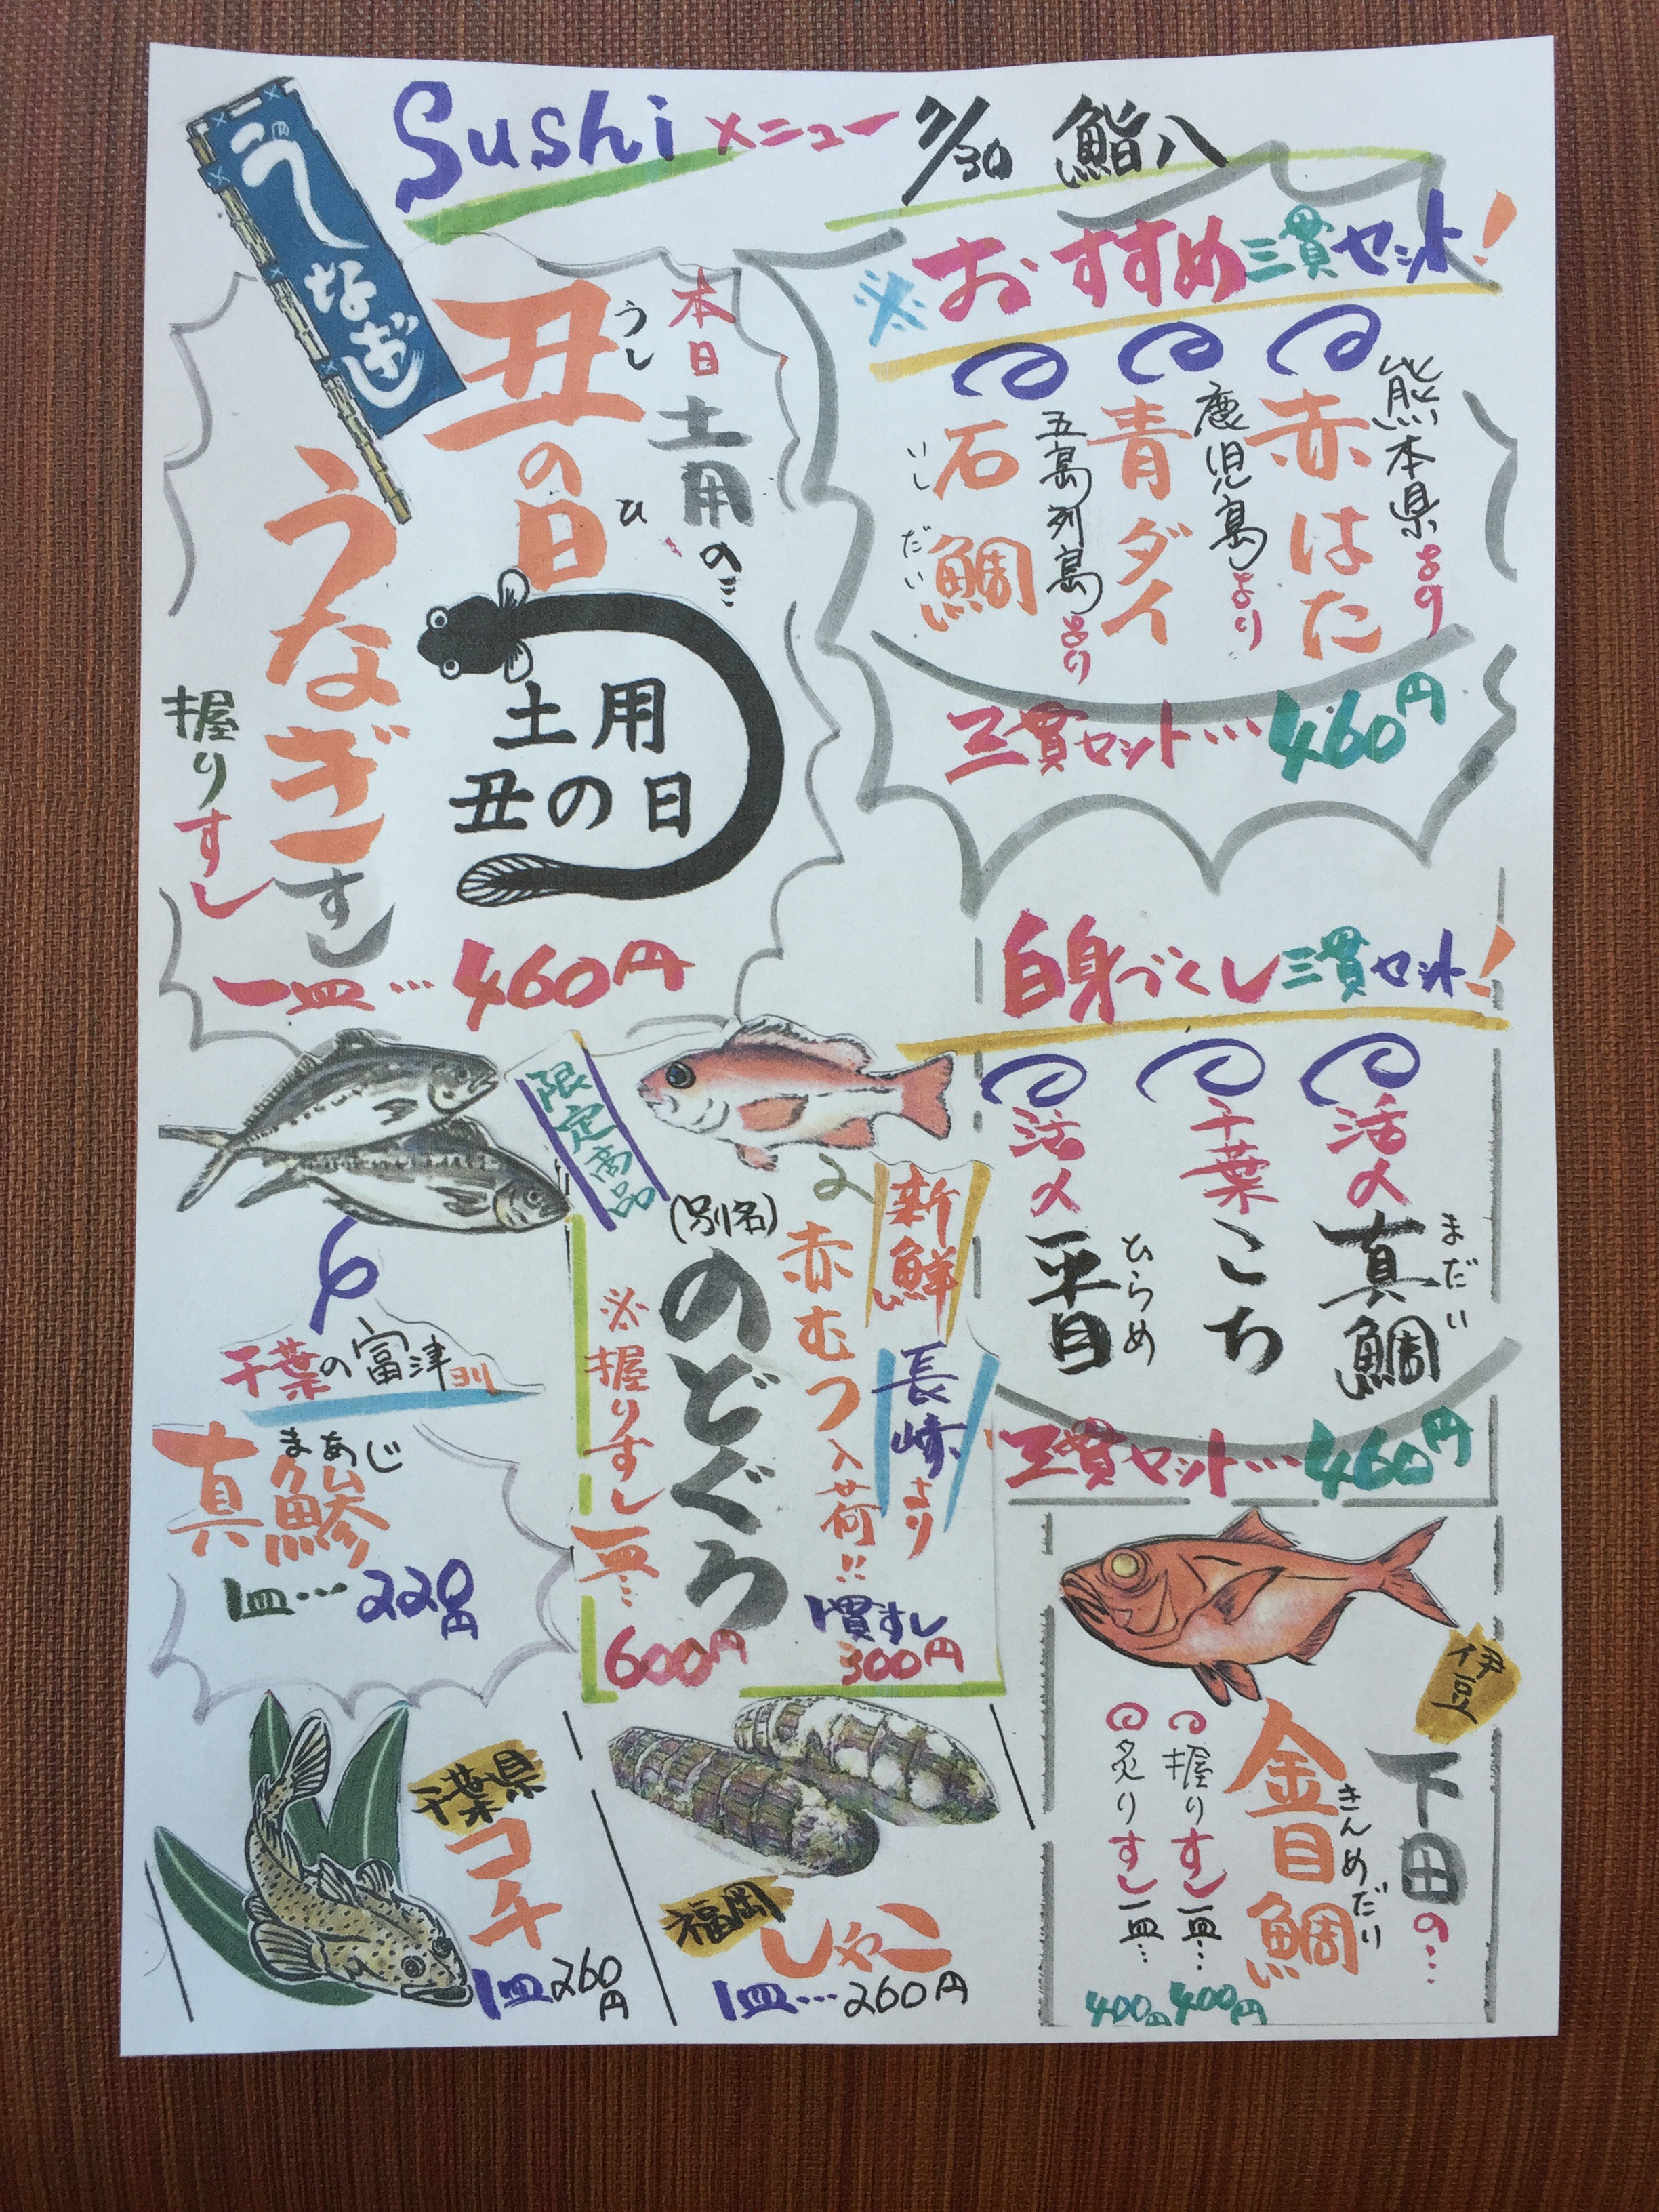 Sushi メニュー 7/30 鮨八
うなぎ
本日
土用の
丑の日
うし
ひ
うなぎすし
握りすし
土用
丑の日
一皿…460円
※おすすめ三貫セット!
熊本県より
赤はた
鹿児島より
青ダイ
五島列島より
石鯛
いし
だい
三貫セット…460円
白身づくし三貫セット!
活〆
真鯛
まだい
千葉
こち
活〆
平目
ひらめ
三貫セット…460円
限定商品
新鮮
長崎より
赤むつ入荷!!
(別名)
のどぐろ
※握りすし一皿…
600円
1貫すし
300円
千葉の富津
真鯵
まあじ
1皿…220円
千葉県
コチ
1皿260円
福岡
しゃこ
1皿…260円
伊豆
下田の…
金目鯛
きんめだい
握りすし一皿…
400円
炙りすし一皿…
400円